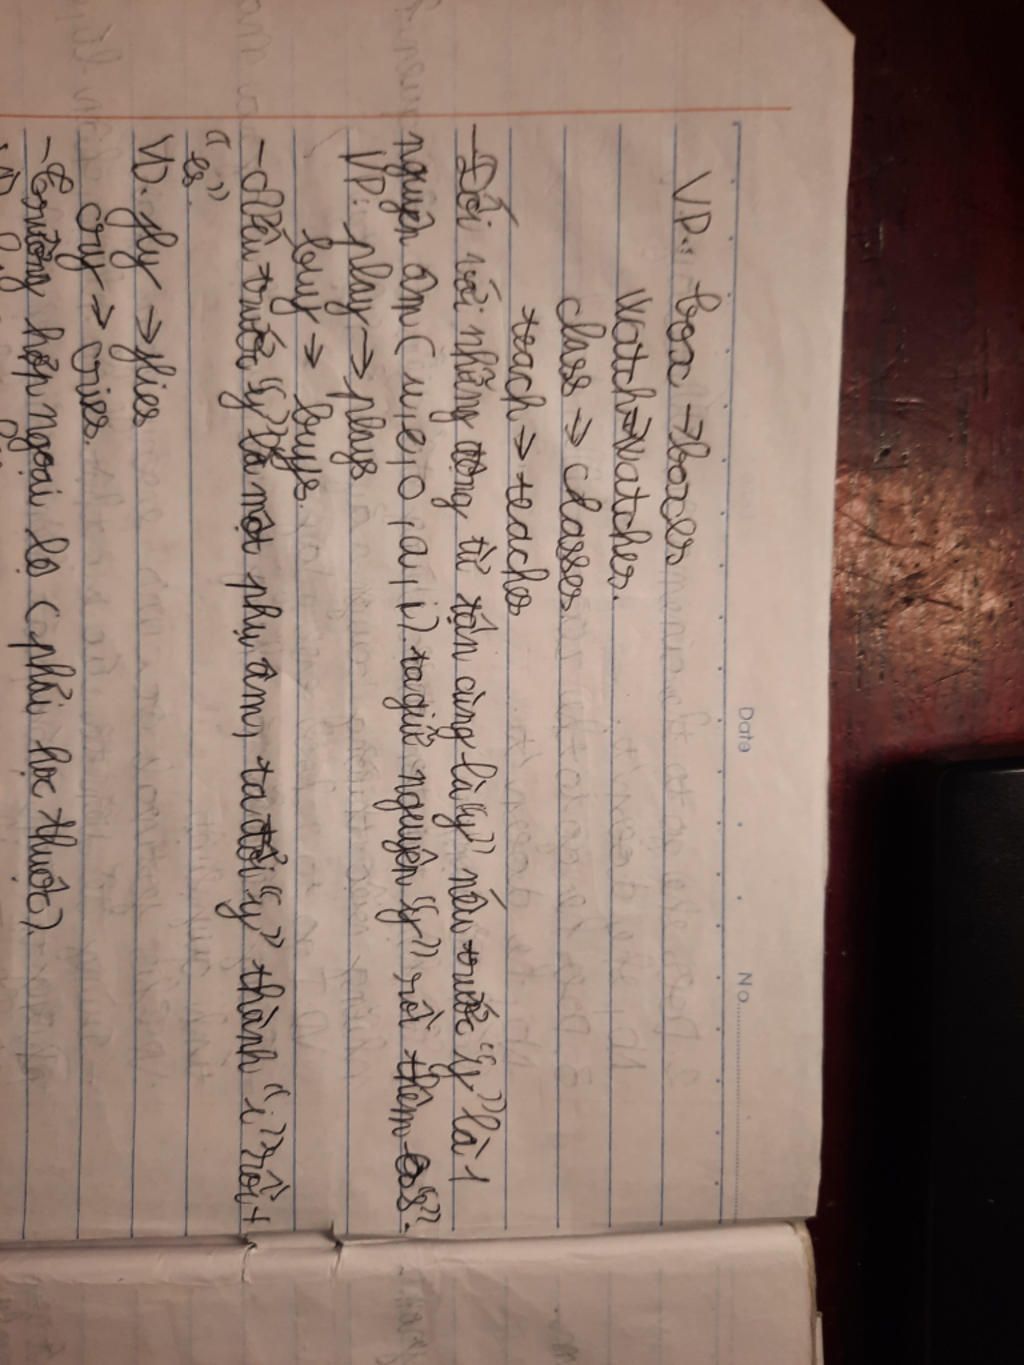 Date
No.
VD: box → boxes
Watch → Watches.
class → classes
teach → teaches
- Đối với những động từ tận cùng là "y" nếu trước "y" là 1
nguyên âm (u, e, o, a, i) ta giữ nguyên "y" rồi thêm "s".
VD: play → plays
buy → buys.
- Nếu trước "y" là một phụ âm, ta đổi "y" thành "i" rồi +
"es".
VD: fly → flies
cry → cries.
- Trường hợp ngoại lệ (phải học thuộc).